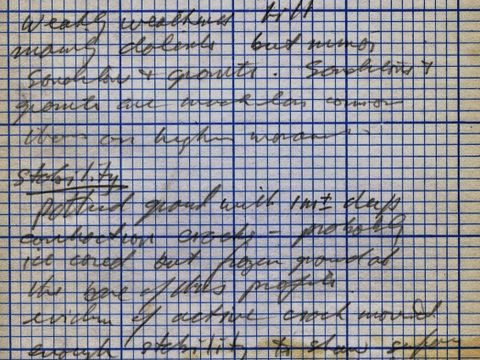 Weakly weathered till
mainly dolerite but minor
Sandstone + granite. Sandstone +
granite are much less common
than on higher moraines.
Stability
Pitted ground with 1m± deep
contraction cracks - probably
ice cored but frozen ground at
the base of this profile.
evidence of active crack movement
enough stability to show surface